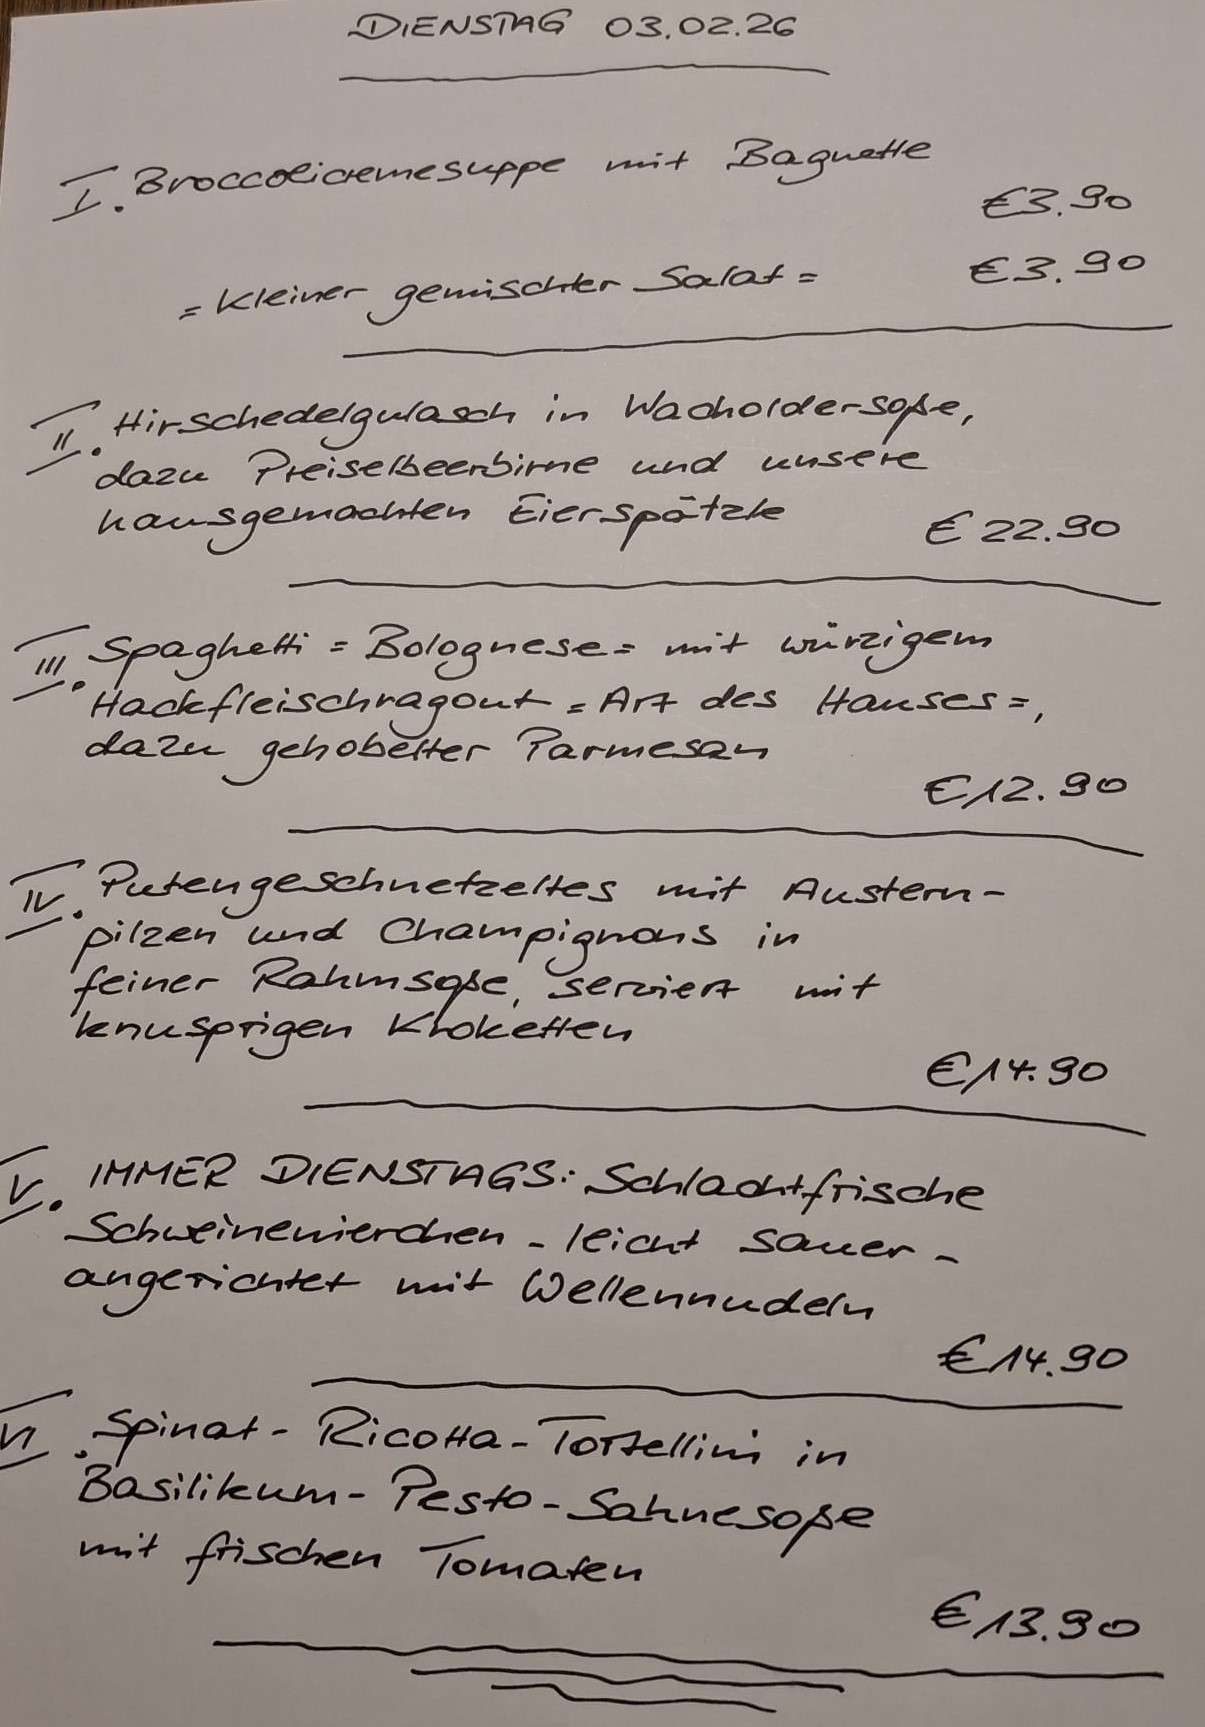 DIENSTAG 03.02.26
I. Broccolicremesuppe mit Baguette
€3.90
= Kleiner gemischter Salat = €3.90
II. Hirschedelgulasch in Wacholdersoße,
dazu Preiselbeerbirne und unsere
hausgemachten Eierspätzle € 22.90
III. Spaghetti = Bolognese = mit würzigem
Hackfleischragout = Art des Hauses =,
dazu gehobelter Parmesan
€12.90
IV. Putengeschnetzeltes mit Austern-
pilzen und Champignons in
feiner Rahmsoße, serviert mit
knusprigen Kroketten
€14.90
V. IMMER DIENSTAGS: Schlachtfrische
Schweinenierchen - leicht sauer -
angerichtet mit Wellennudeln
€14.90
VI. Spinat-Ricotta-Tortellini in
Basilikum-Pesto-Sahnesoße
mit frischen Tomaten
€13.90